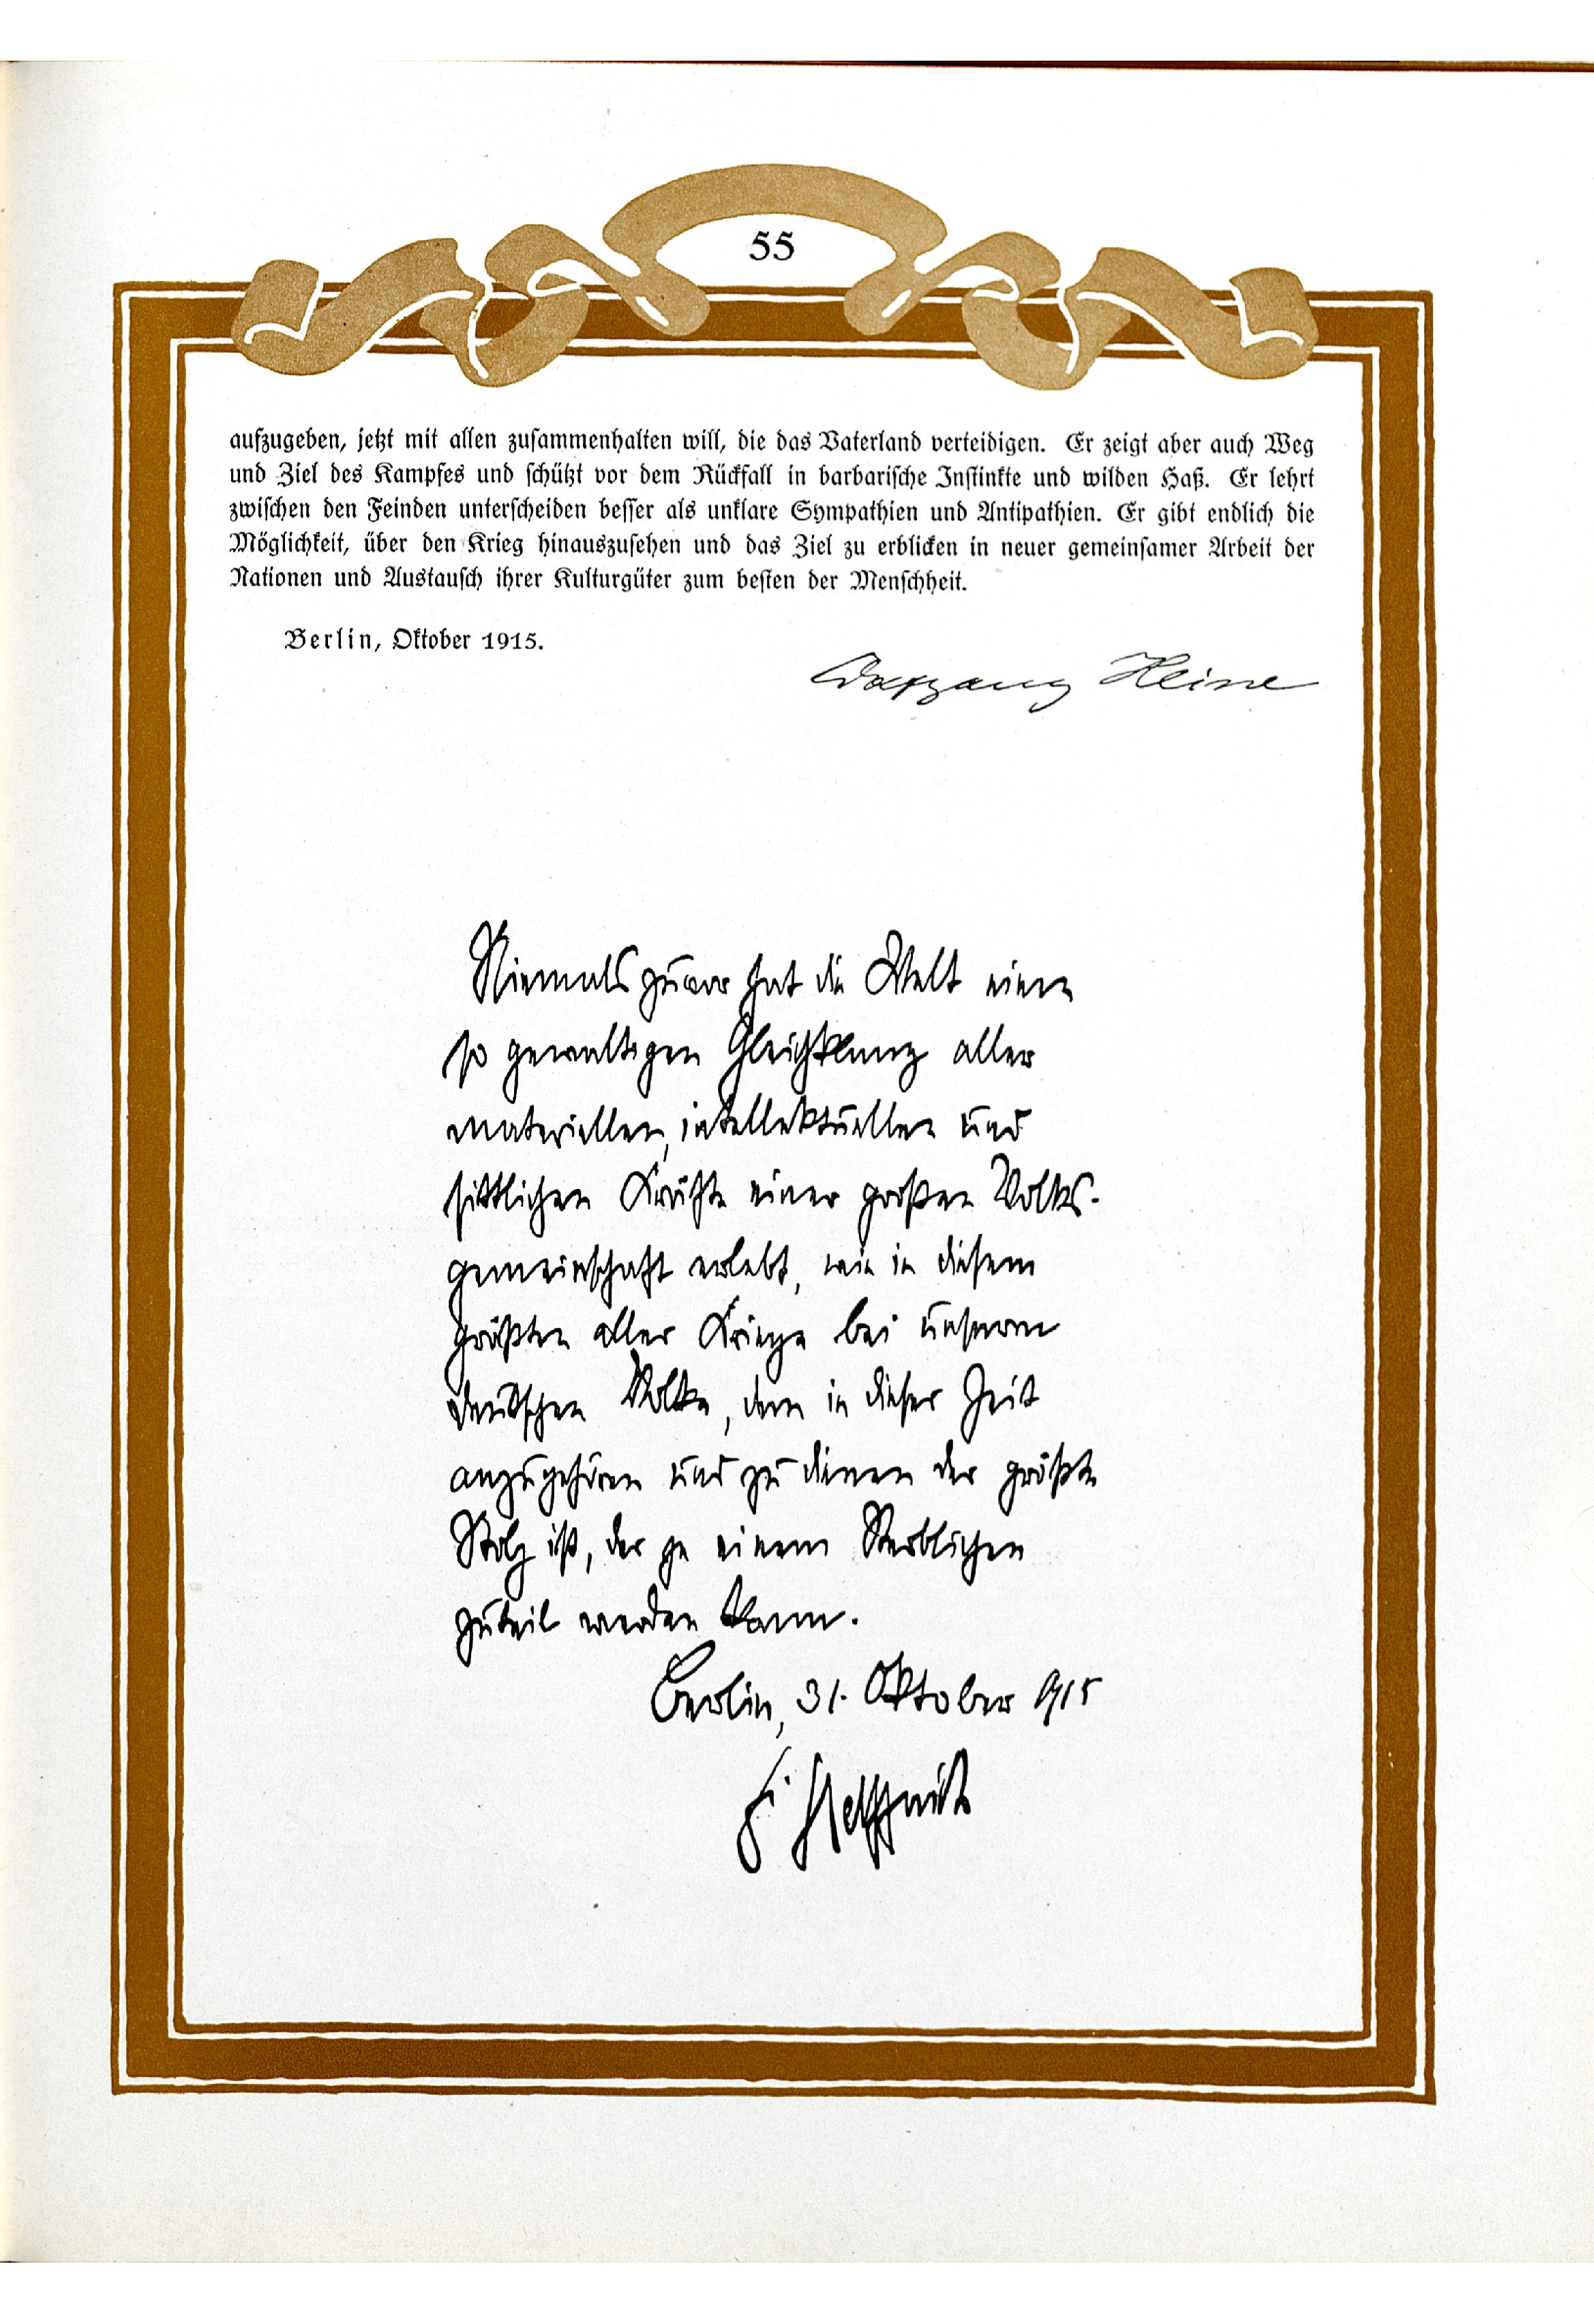 55
aufzugeben, jetzt mit allen zusammenhalten will, die das Vaterland verteidigen. Er zeigt aber auch Weg
und Ziel des Kampfes und schützt vor dem Rückfall in barbarische Instinkte und wilden Haß. Er lehrt
zwischen den Feinden unterscheiden besser als unklare Sympathien und Antipathien. Er gibt endlich die
Möglichkeit, über den Krieg hinauszusehen und das Ziel zu erblicken in neuer gemeinsamer Arbeit der
Nationen und Austausch ihrer Kulturgüter zum besten der Menschheit.
Berlin, Oktober 1915.
Wolfgang Heine
Niemals zuvor hat die Welt einen
so gewaltigen Gleichklang aller
materiellen, intellektuellen und
sittlichen Kräfte einer großen Volks-
gemeinschaft erlebt, wie in diesem
größten aller Kriege bei unserm
deutschen Volke, dem in dieser Zeit
anzugehören und zu dienen der größte
Stolz ist, der je einem Sterblichen
zuteil werden kann.
Berlin, 31. Oktober 1915
Helfferich